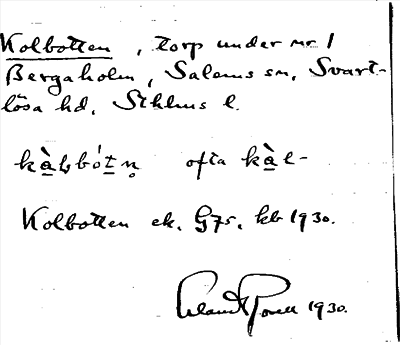 Kolbotten, torp under nr 1
Bergaholm, Salems sn, Svart-
lösa hd, Sthlms l.
kàlbót ofta kàl-
Kolbotten ek. G75. kb 1930.
1930.